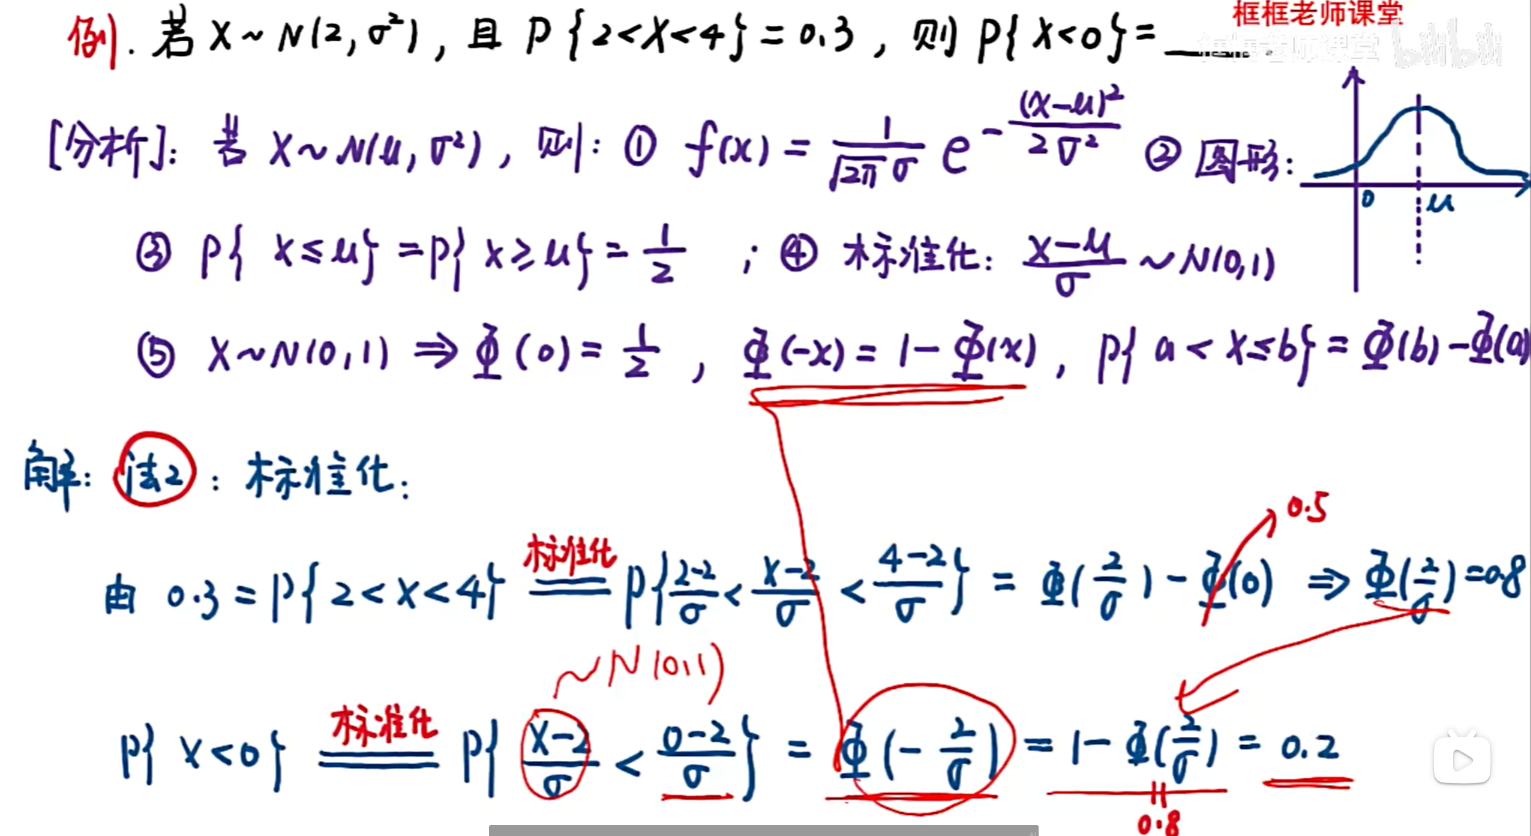 框框老师课堂
例. 若 X~N(2, σ²), 且 P{2<X<4}=0.3, 则 P{X<0}=____
框框老师课堂 bilibili
[分析]: 若 X~N(μ, σ²), 则: ① f(x) = \frac{1}{\sqrt{2π}σ} e^{-\frac{(x-μ)²}{2σ²}} ② 图形:
0 μ
③ P{X≤μ} = P{X≥μ} = \frac{1}{2} ; ④ 标准化: \frac{X-μ}{σ} ~ N(0,1)
⑤ X~N(0,1) ⇒ Φ(0) = \frac{1}{2}, Φ(-x) = 1-Φ(x), P{a<X≤b} = Φ(b)-Φ(a)
解: 法2: 标准化:
0.5
标准化
由 0.3 = P{2<X<4} = P{\frac{2-2}{σ} < \frac{X-2}{σ} < \frac{4-2}{σ}} = Φ(\frac{2}{σ}) - Φ(0) ⇒ Φ(\frac{2}{σ})=0.8
~N(0,1)
标准化
P{X<0} = P{\frac{X-2}{σ} < \frac{0-2}{σ}} = Φ(-\frac{2}{σ}) = 1-Φ(\frac{2}{σ}) = 0.2
0.8